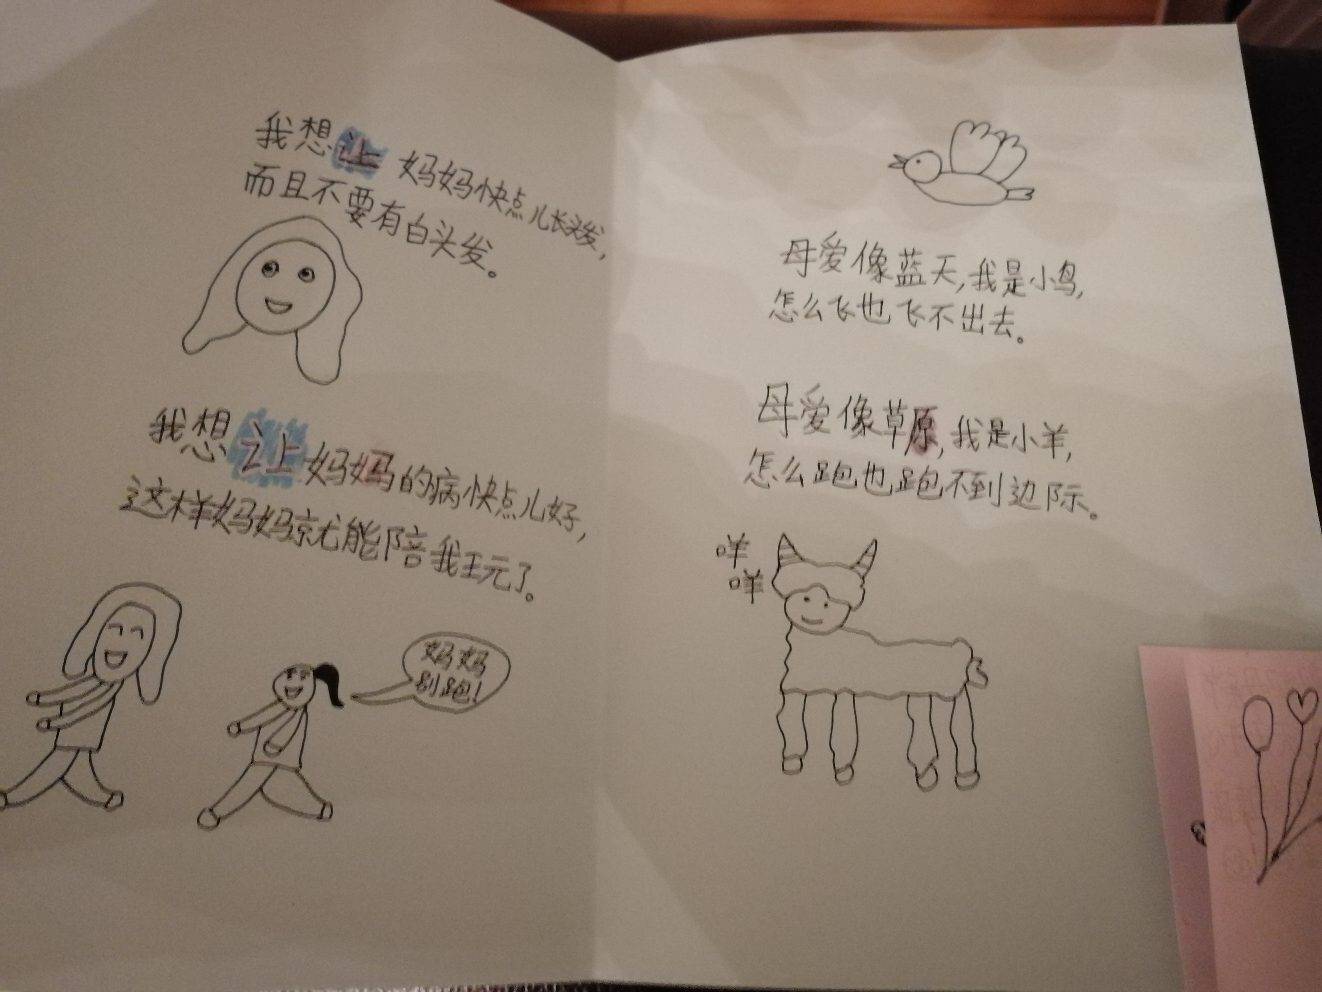 我想让妈妈快点儿长头发，
而且不要有白头发。
我想让妈妈的病快点儿好，
这样妈妈就能陪我王元了。
妈妈
别跑！
母爱像蓝天，我是小鸟，
怎么飞也飞不出去。
母爱像草原，我是小羊，
怎么跑也跑不到边际。
咩
咩